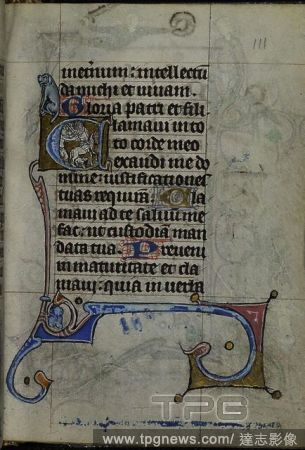 111
ineternum: intellectu
da michi et vivam.
Gloria patri et fili
Clamavi in to
to corde meo
exaudi me do
mine: iustificationes
tuas requirā. Cla
mavi ad te salvū me
fac: ut custodiā man
data tua. Preveni
in maturitate et cla
mavi: quia in verba
TPG
www.tpgnews.com/ 達志影像